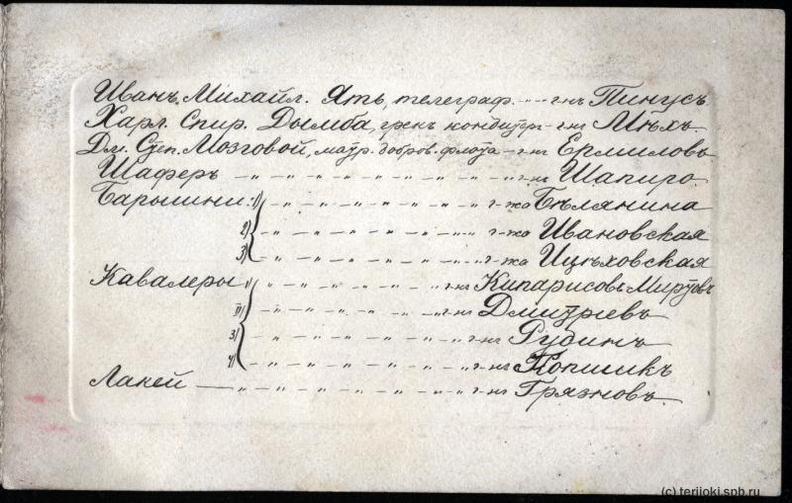 Иванъ Михайл. Ять, телеграф. — " — г-нъ Пинусъ
Харл. Спир. Дымба, грекъ кондитер — г-нъ Мѣхъ.
Дм. Степ. Мозговой, матр. добров. флота — г-нъ Ермиловъ
Шаферъ — " — " — " — " — " — г-нъ Шапиро
Барышни: 1) — " — " — " — " — г-жа Бѣлянина
2) — " — " — " — " — г-жа Ивановская
3) — " — " — " — " — г-жа Ицѣховская
Кавалеры 1) — " — " — " — г-нъ Кипарисовъ Миртовъ
2) — " — " — " — " — г-нъ Дмитріевъ
3) — " — " — " — " — г-нъ Рубинъ
4) — " — " — " — " — г-нъ Копшикъ
Лакей — " — " — " — " — " — г-нъ Грязновъ
(c) terijoki.spb.ru